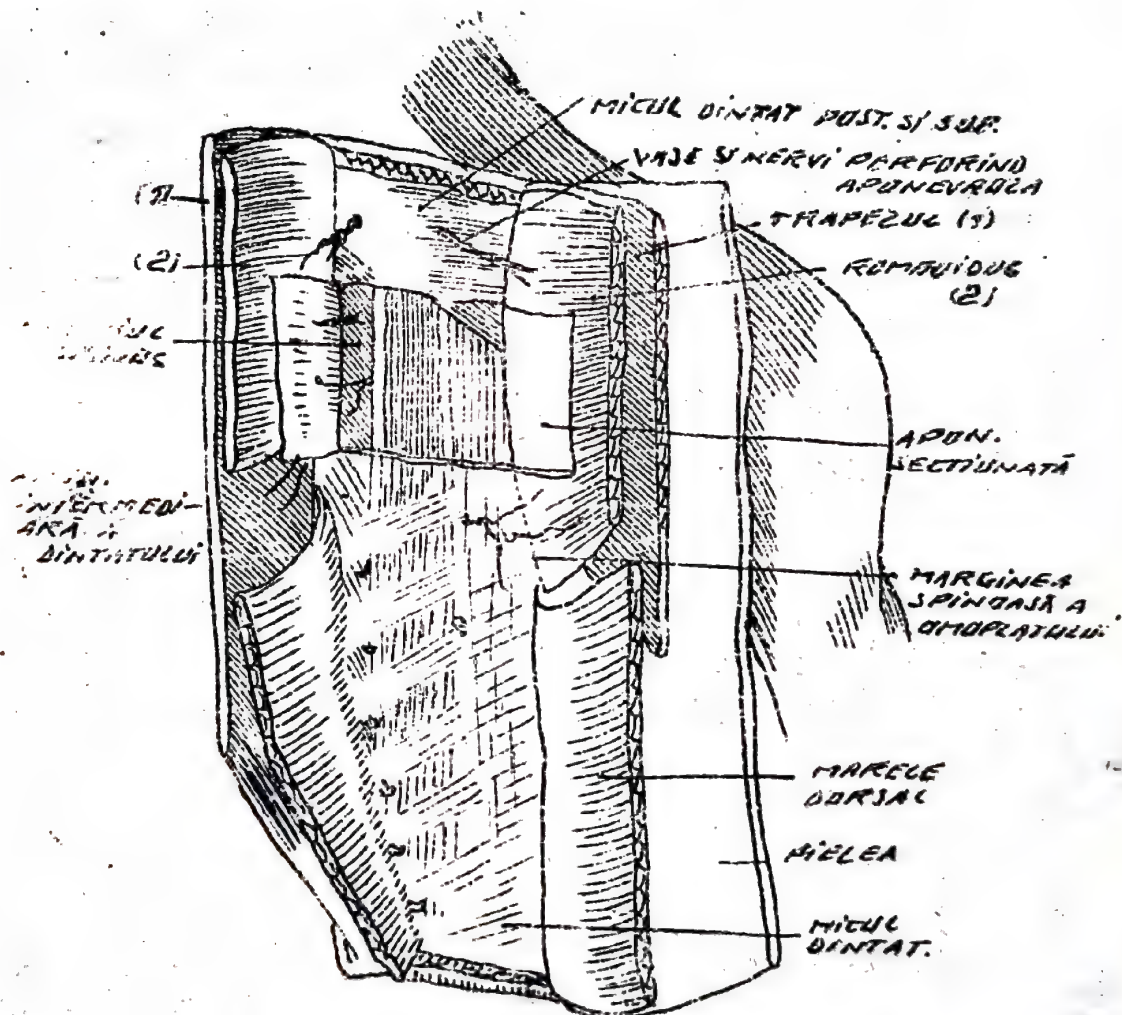 MICUL DINTAT POST. SI SUP.
VASE SI NERVI PERFORIND
APONEVROZA
(1)
TRAPEZUL (1)
(2)
ROMBOIDUL
(2)
APON.
SECTIUNATĂ
INTERMEDI-
ARĂ A
DINTATULUI
MARGINEA
SPINOASĂ A
OMOPLATULUI
MARELE
DORSAL
PIELEA
MICUL
DINTAT.